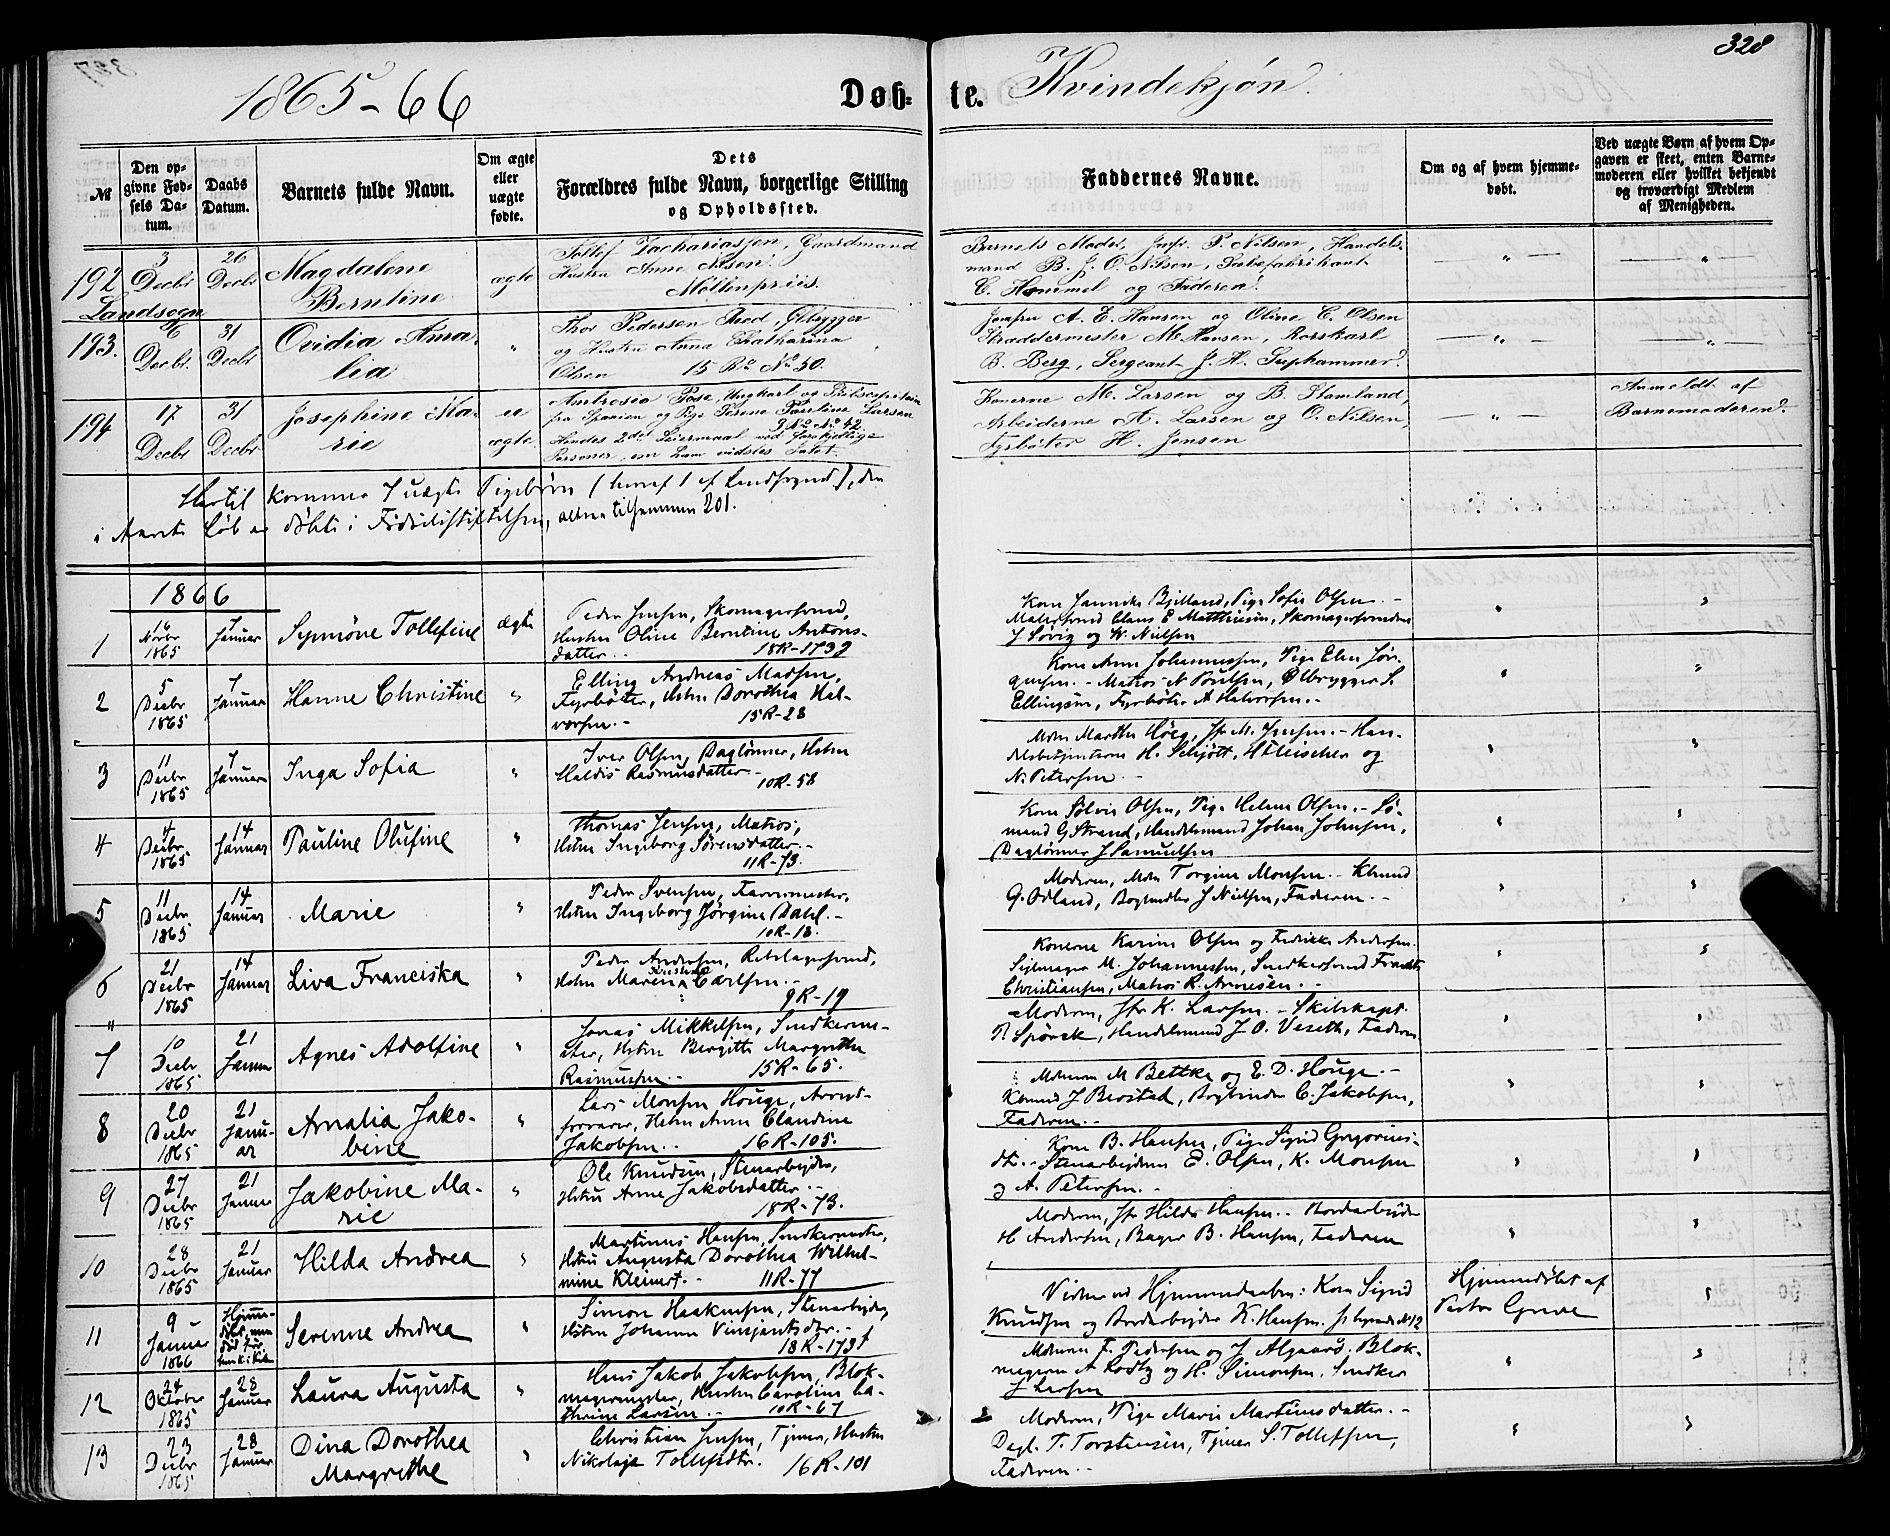 328
1865-66
Døb-
te.
Kvindekjøn.
№
Den op-
givne Fød-
sels Da-
tum.
Daabs
Datum.
Barnets fulde Navn.
Om ægte
eller
uægte
fødte.
Dets
Forældres fulde Navn, borgerlige Stilling
og Opholdssted.
Faddernes Navne.
Om og af hvem hjemme-
døbt.
Ved uægte Børn af hvem Op-
gaven er skeet, enten Barne-
moderen eller hvilket bekjendt
og troværdigt Medlem
af Menigheden.
192
Landsogn
3
Decbr
26
Decbr
Magdalene
Berntine
ægte
Tollef Zachariassen, Gaardmand
Hustru Anne Nilsen.
Møllenpriis.
Barnets Moder, Jmfr. P. Nilsen, Handels-
mand B. J. O. Nilsen, Sæbefabrikant
C. Hammel og Faderen.
193.
6
Decbr.
31
Decbr
Ovidia Ama-
lia
"
Thor Pedersen Røed, Ølbrygger
og Hustru Anna Chatharina
Olsen 15 Rd No 50.
Jomfru A. E. Hansen og Oline C. Olsen
Skræddermester M. Hansen, Rorskarl
B. Berg, Sergeant J. H. Suphammer.
194
17
Decbr
31
Decbr
Josephine Ma-
rie
u
ægte
Ambrosio Pose, Ungkarl og Skibscapitain
fra Spanien og Pige Serene Pauline Larsen
3 Rd No 42
Hendes 2det Leiermaal ved forskjellige
Personer, om ham vidstes Intet.
Konerne M. Larsen og B. Stamland,
Arbeiderne A. Larsen og O. Nilsen,
Fyrbøter H. Jensen
Anmeldt af
Barnemoderen.
Hertil kommer 7 uægte Pigebørn (heraf 1 af Landsognet), der
i Aarets Løb er døbte i Fødselsstiftelsen, altsaa tilsammen 201.
1866
1
16
Novbr
1865
7
Januar
Synnöve Tollefine
ægte
Peder Jensen, Skomagersvend,
Hustru Oline Berntine Antons-
datter.. 18R-173
Kone Jannike Bjelland, Pige Sofie Olsen.-
Malersvend Claus E Matthiesen, Skomagersvendene
J Sörvig og W. Nielsen
2
5
Decbr
1865
7
Januar
Hanne Christine
"
Elling Andreas Madsen,
Fyrböter, Hstru Dorothea Hal-
vorsen.- 15R-28
Kone Anne Johannessen, Pige Elen Jör-
gensen.- Matros N Poulsen, Ølbrygger S.
Ellingsen, Fyrböter A Halvorsen.-
3
11
Decbr
1865
7
Januar
Inga Sofia
"
Iver Olsen, Daglønner, Hstru
Haldis Rasmusdatter.-
10R-58
Mdm Marthe Höeg, Jfr M. Jensen.- Han-
delsbetjentene H. Schjött, H Fleischer og
N. Petersen.-
4
4
Decbr
1865
14
Januar
Pauline Olufine
"
Thomas Jensen, Matros,
Hstru Ingeborg Sørensdatter.-
11R-73.
Kone Sölvie Olsen, Pige Helene Olsen.- Sö-
mand G. Strand, Handelsmand Johan Johnsen,
Daglønner J Samuelsen
5
11
Decbr
1865
14
Januar
Marie
"
Peder Svensen, Farvemester,
Hstru Ingeborg Jørgine Dahl.-
10R-13.
Moderen, Mdm Torgine Monsen.- Kbmnd
G. Odland, Boghndler J Nielsen, Faderen.-
6
"
21
Decbr
1865
14
Januar
Liva Franciska
"
Peder Andersen, Rebslagersvend,
Hstru Maren Carlsen.-
9R-19
Konerne Karine Olsen og Fredrikke Andersen.
Sejlmager M. Johannessen, Snedkersvend
Christiansen, Matros R. Arnesen.-
7
10
Decbr
1865
21
Januar
Agnes Adolfine
"
Jonas Mikkelsen, Snedkerme-
ster, Hstru Bergitte Margrethe
Rasmussen.- 15R-65.
Moderen, Jfr K. Larsen.- Skibskapt.
P. Spörck, Handelsmand J. O. Veseth, Faderen
8
20
Decbr
1865
21
Janu-
ar
Amalia Jako-
bine
"
Lars Monsen Houge, Arrest-
forvarer, Hstru Anne Claudine
Jakobsen.. 16R-105.
Mdmerne M Bettke og E. D. Houge.-
Kbmnd J Beostad, Bogbinder C. Jakobsen,
Faderen.-
9
27
Decbr
1865
21
Januar
Jakobine Ma-
rie
"
Ole Knudsen, Stenarbejder,
Hstru Anne Jakobsdatter.-
18R-73.
Kone B. Hansen, Pige Sigrid Gregorius-
dt.- Stenarbejderne E. Olsen, K. Monsen
og A. Petersen.-
10
28
Decbr
1865
21
Januar
Hilda Andrea
"
Martinus Hansen, Snedkermester,
Hstru Augusta Dorothea Wilhel-
mine Kleinert.- 11R-77
Moderen, Jfr Hilda Hansen.- Bordarbejder
H Andersen, Bager B. Hansen, Faderen
11
9
Januar
1866
Hjemme-
døbt, men
død før
Serenne Andrea
"
Simon Haakensen, Stenarbejder,
Hstru Johanne Vinsjantsdtr.-
18R-173
Vidner ved Hjemmedaaben: Kone Sigrid
Knudsen og Bordarbejder K. Hansen.
Hjemmedöbt af
Pastor Greve
12
24
Oktober
1865
28
Januar
Laura Augusta
"
Hans Jakob Jakobsen, Blok-
magermester, Hustru Caroline Ca-
thrine Larsen.- 10R-67
Mdmerne F. Pedersen og J Algaard. Blok-
magerne A Rodtz og H. Simonsen, Snedker
J Larsen
13
23
Decbr
1865
28
Januar
Dina Dorothea
Margrethe
"
Christian Jensen, Tjener, Hustru
Nikolaja Tollefsdtr. 16R-101
Moderen, Pige Marie Martinusdatter.-
Dagl. T. Torstensen, Tjener S. Tollefsen,
Faderen.-